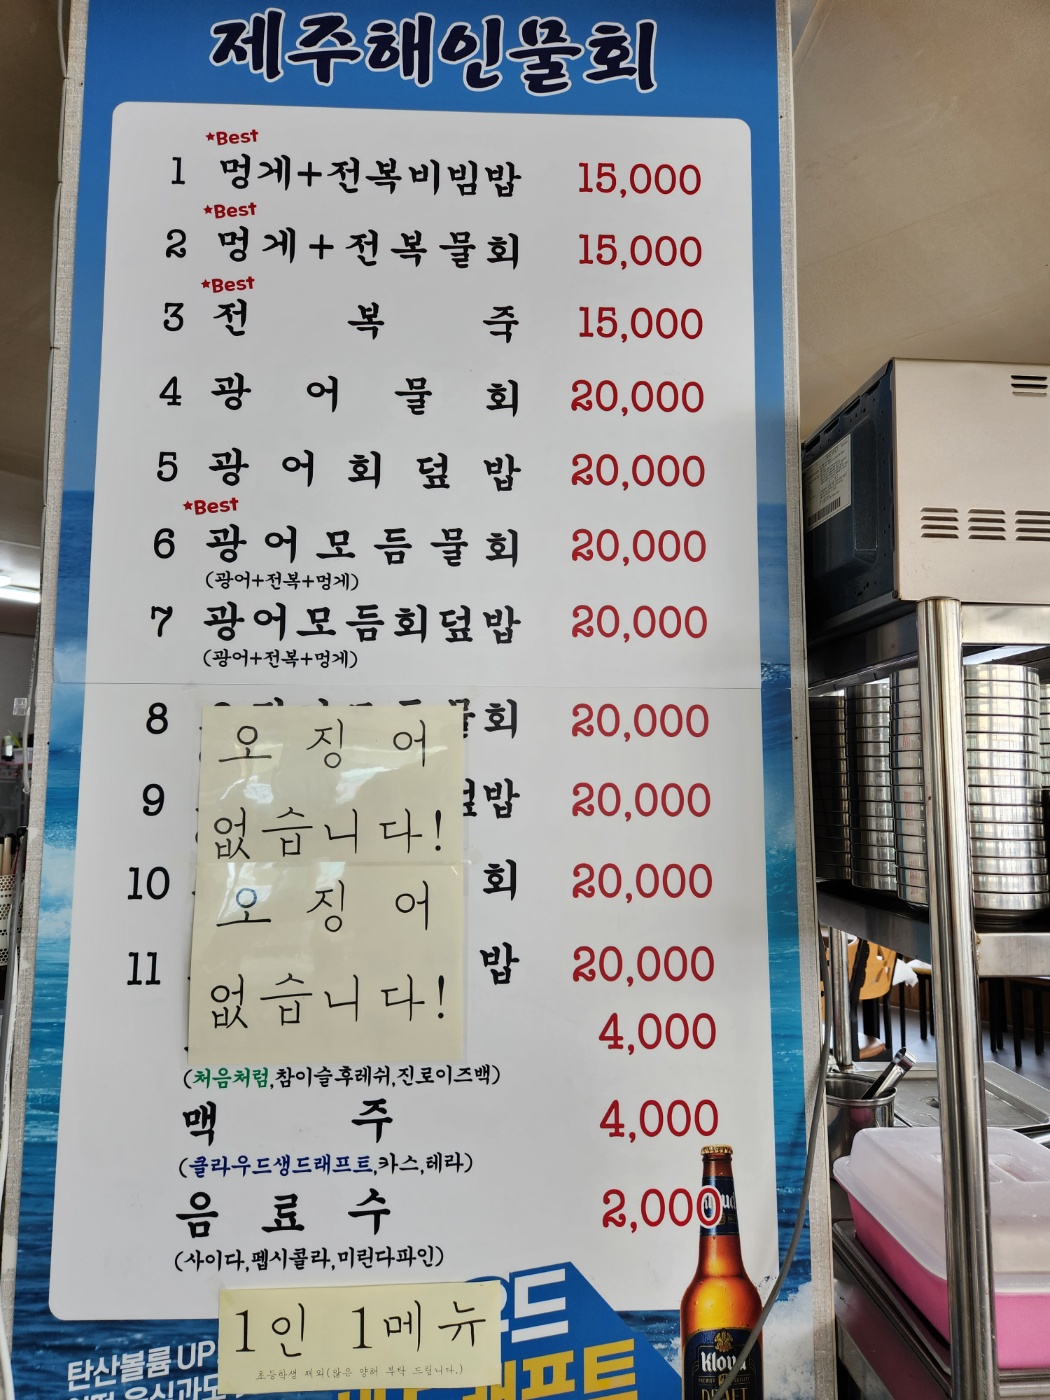 제주해인물회
*Best
1 멍게+전복비빔밥 15,000
*Best
2 멍게+전복물회 15,000
*Best
3 전복죽 15,000
4 광어물회 20,000
5 광어회덮밥 20,000
*Best
6 광어모듬물회 20,000
(광어+전복+멍게)
7 광어모듬회덮밥 20,000
(광어+전복+멍게)
8 회 20,000
오징어
9 밥 20,000
없습니다!
10 회 20,000
오징어
11 밥 20,000
없습니다!
4,000
(처음처럼,참이슬후레쉬,진로이즈백)
맥주 4,000
(클라우드생드래프트,카스,테라)
음료수 2,000
(사이다,펩시콜라,미린다파인)
1인 1메뉴
초등학생 제외(많은 양해 부탁 드립니다.)
탄산볼륨 UP
Kloud
DRAFT